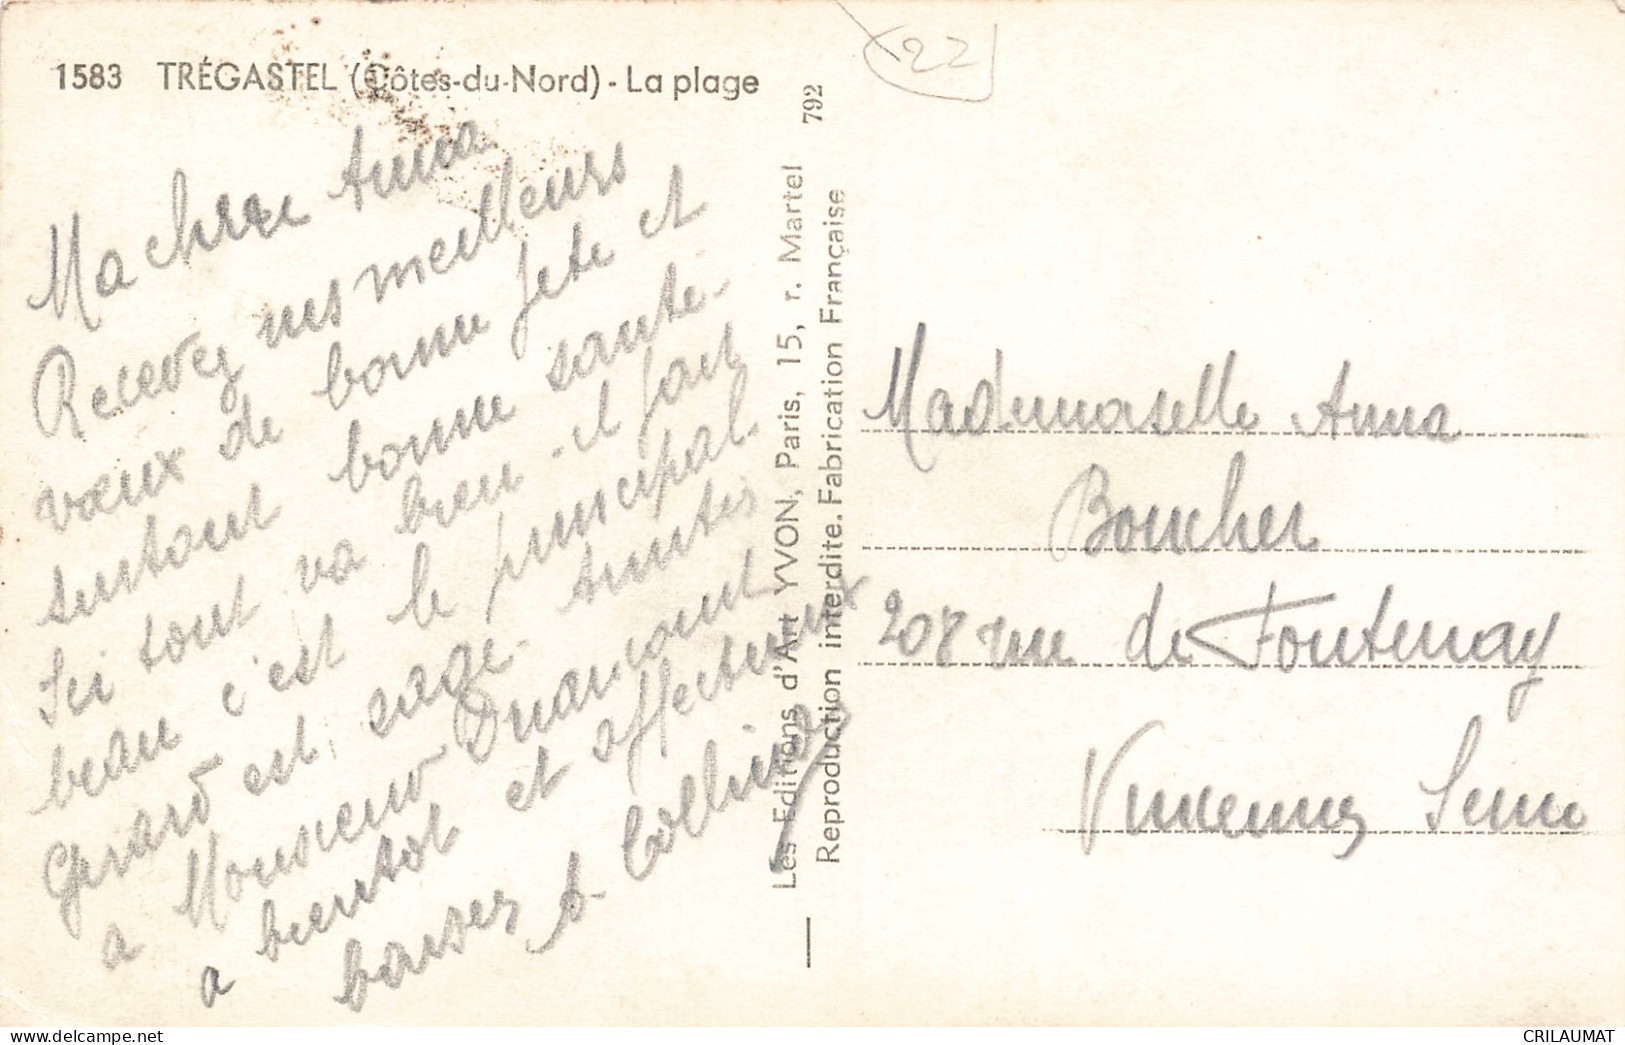 1583 TRÉGASTEL (Côtes-du-Nord) - La plage
22
Ma chere Anna
Recevez mes meilleurs
vœux de bonne fete et
surtout bonne santé.
Ici tout va bien. il fait
beau c'est le principal.
Gerard est sage. Amities
a Monsieur
a bientot et affectueux
baisers
792
Les Editions d'Art YVON, Paris, 15, r. Martel
Reproduction interdite. Fabrication Française
Mademoiselle Anna
Boucher
208 rue de Fontenay
Vincennes Seine
delcampe.net
CRILAUMAT